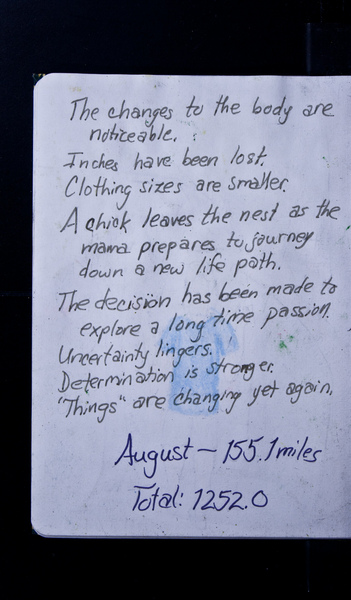 The changes to the body are
noticeable.
Inches have been lost.
Clothing sizes are smaller.
A chick leaves the nest as the
mama prepares to journey
down a new life path.
The decision has been made to
explore a long time passion.
Uncertainty lingers.
Determination is stronger.
"Things" are changing yet again.
August - 155.1 miles
Total: 1252.0